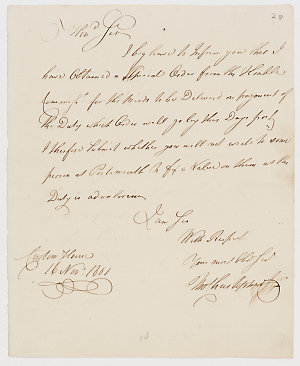 28
Hon.d Sir
I beg leave to Inform you that I
have Obtained a Special Order from the Hon.ble
Commiss.rs for the Birds to be Deliver'd on payment of
the Duty which Order will go by this Days post
I therefore Submit whether you will not write to some
person at Portsmouth to fix a Value on them as the
Duty is advalorem
I am Sir
With Respect
Your most Obed Ser
Custom House
16 Nov.r 1801